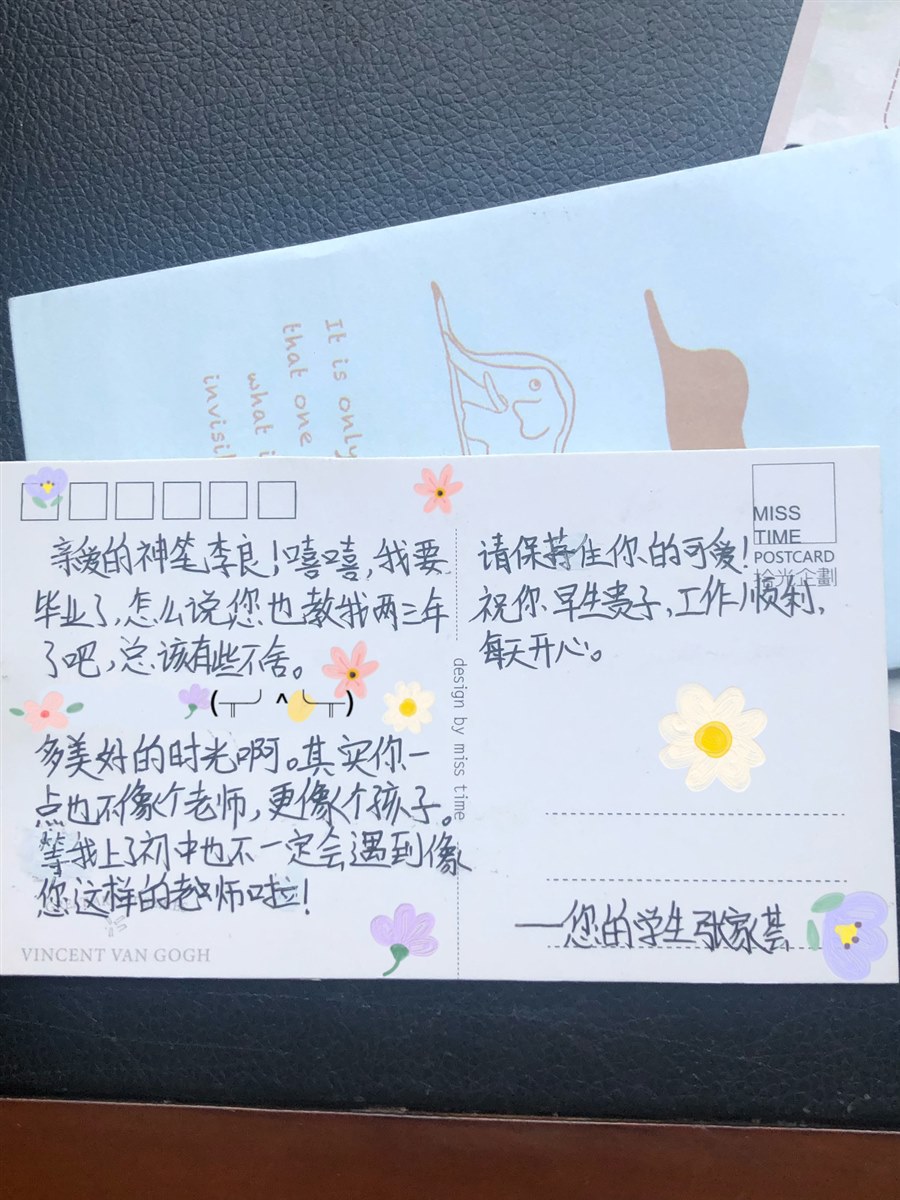 It is only
that one
what i
invisil
MISS
TIME
POSTCARD
拾光企劃
亲爱的神笔李良！嘻嘻，我要
毕业了，怎么说您也教我两三年
了吧，总该有些不舍。
(╥╯^╰╥)
多美好的时光啊。其实你一
点也不像个老师，更像个孩子。
等我上了初中也不一定会遇到像
您这样的老师啦！
VINCENT VAN GOGH
design by miss time
请保持住你的可爱！
祝你早生贵子，工作顺利，
每天开心。
——您的学生张家芸